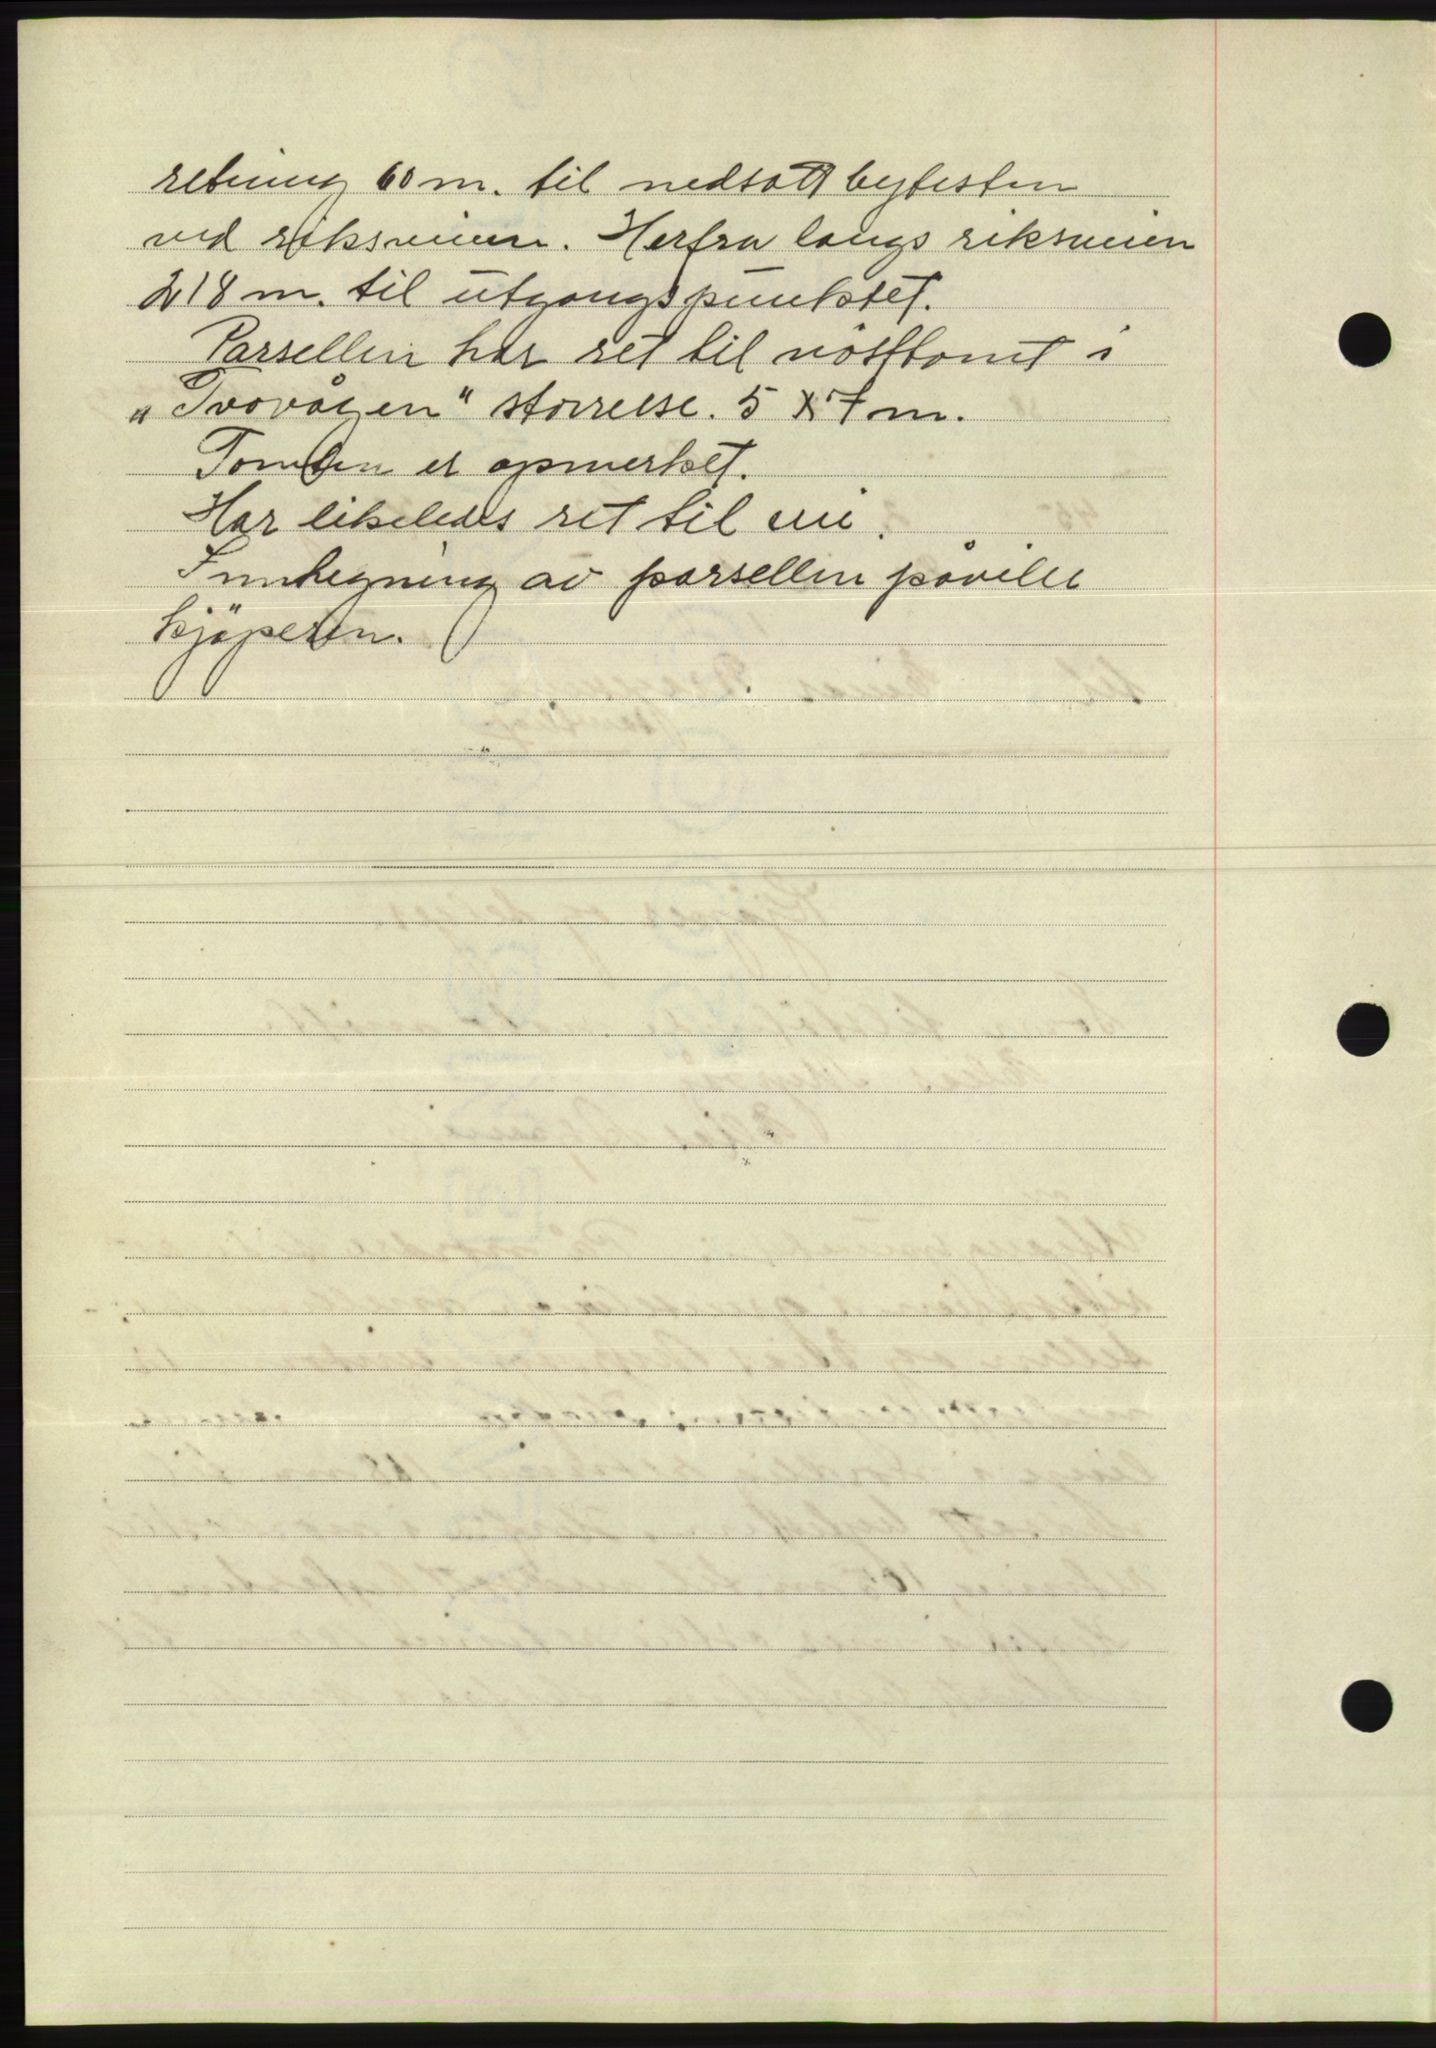 retning 60 m. til nedsatt bytesten
ved riksveien. Herfra langs riksveien
218 m. til utgangspunktet.
Parsellen har ret til nösttomt i
„Tvovågen" störrelse. 5 x 7 m.
Tomten er opmerket.
Har likeledes ret til vei.
Innhegning av parsellen påviler
kjöperen.